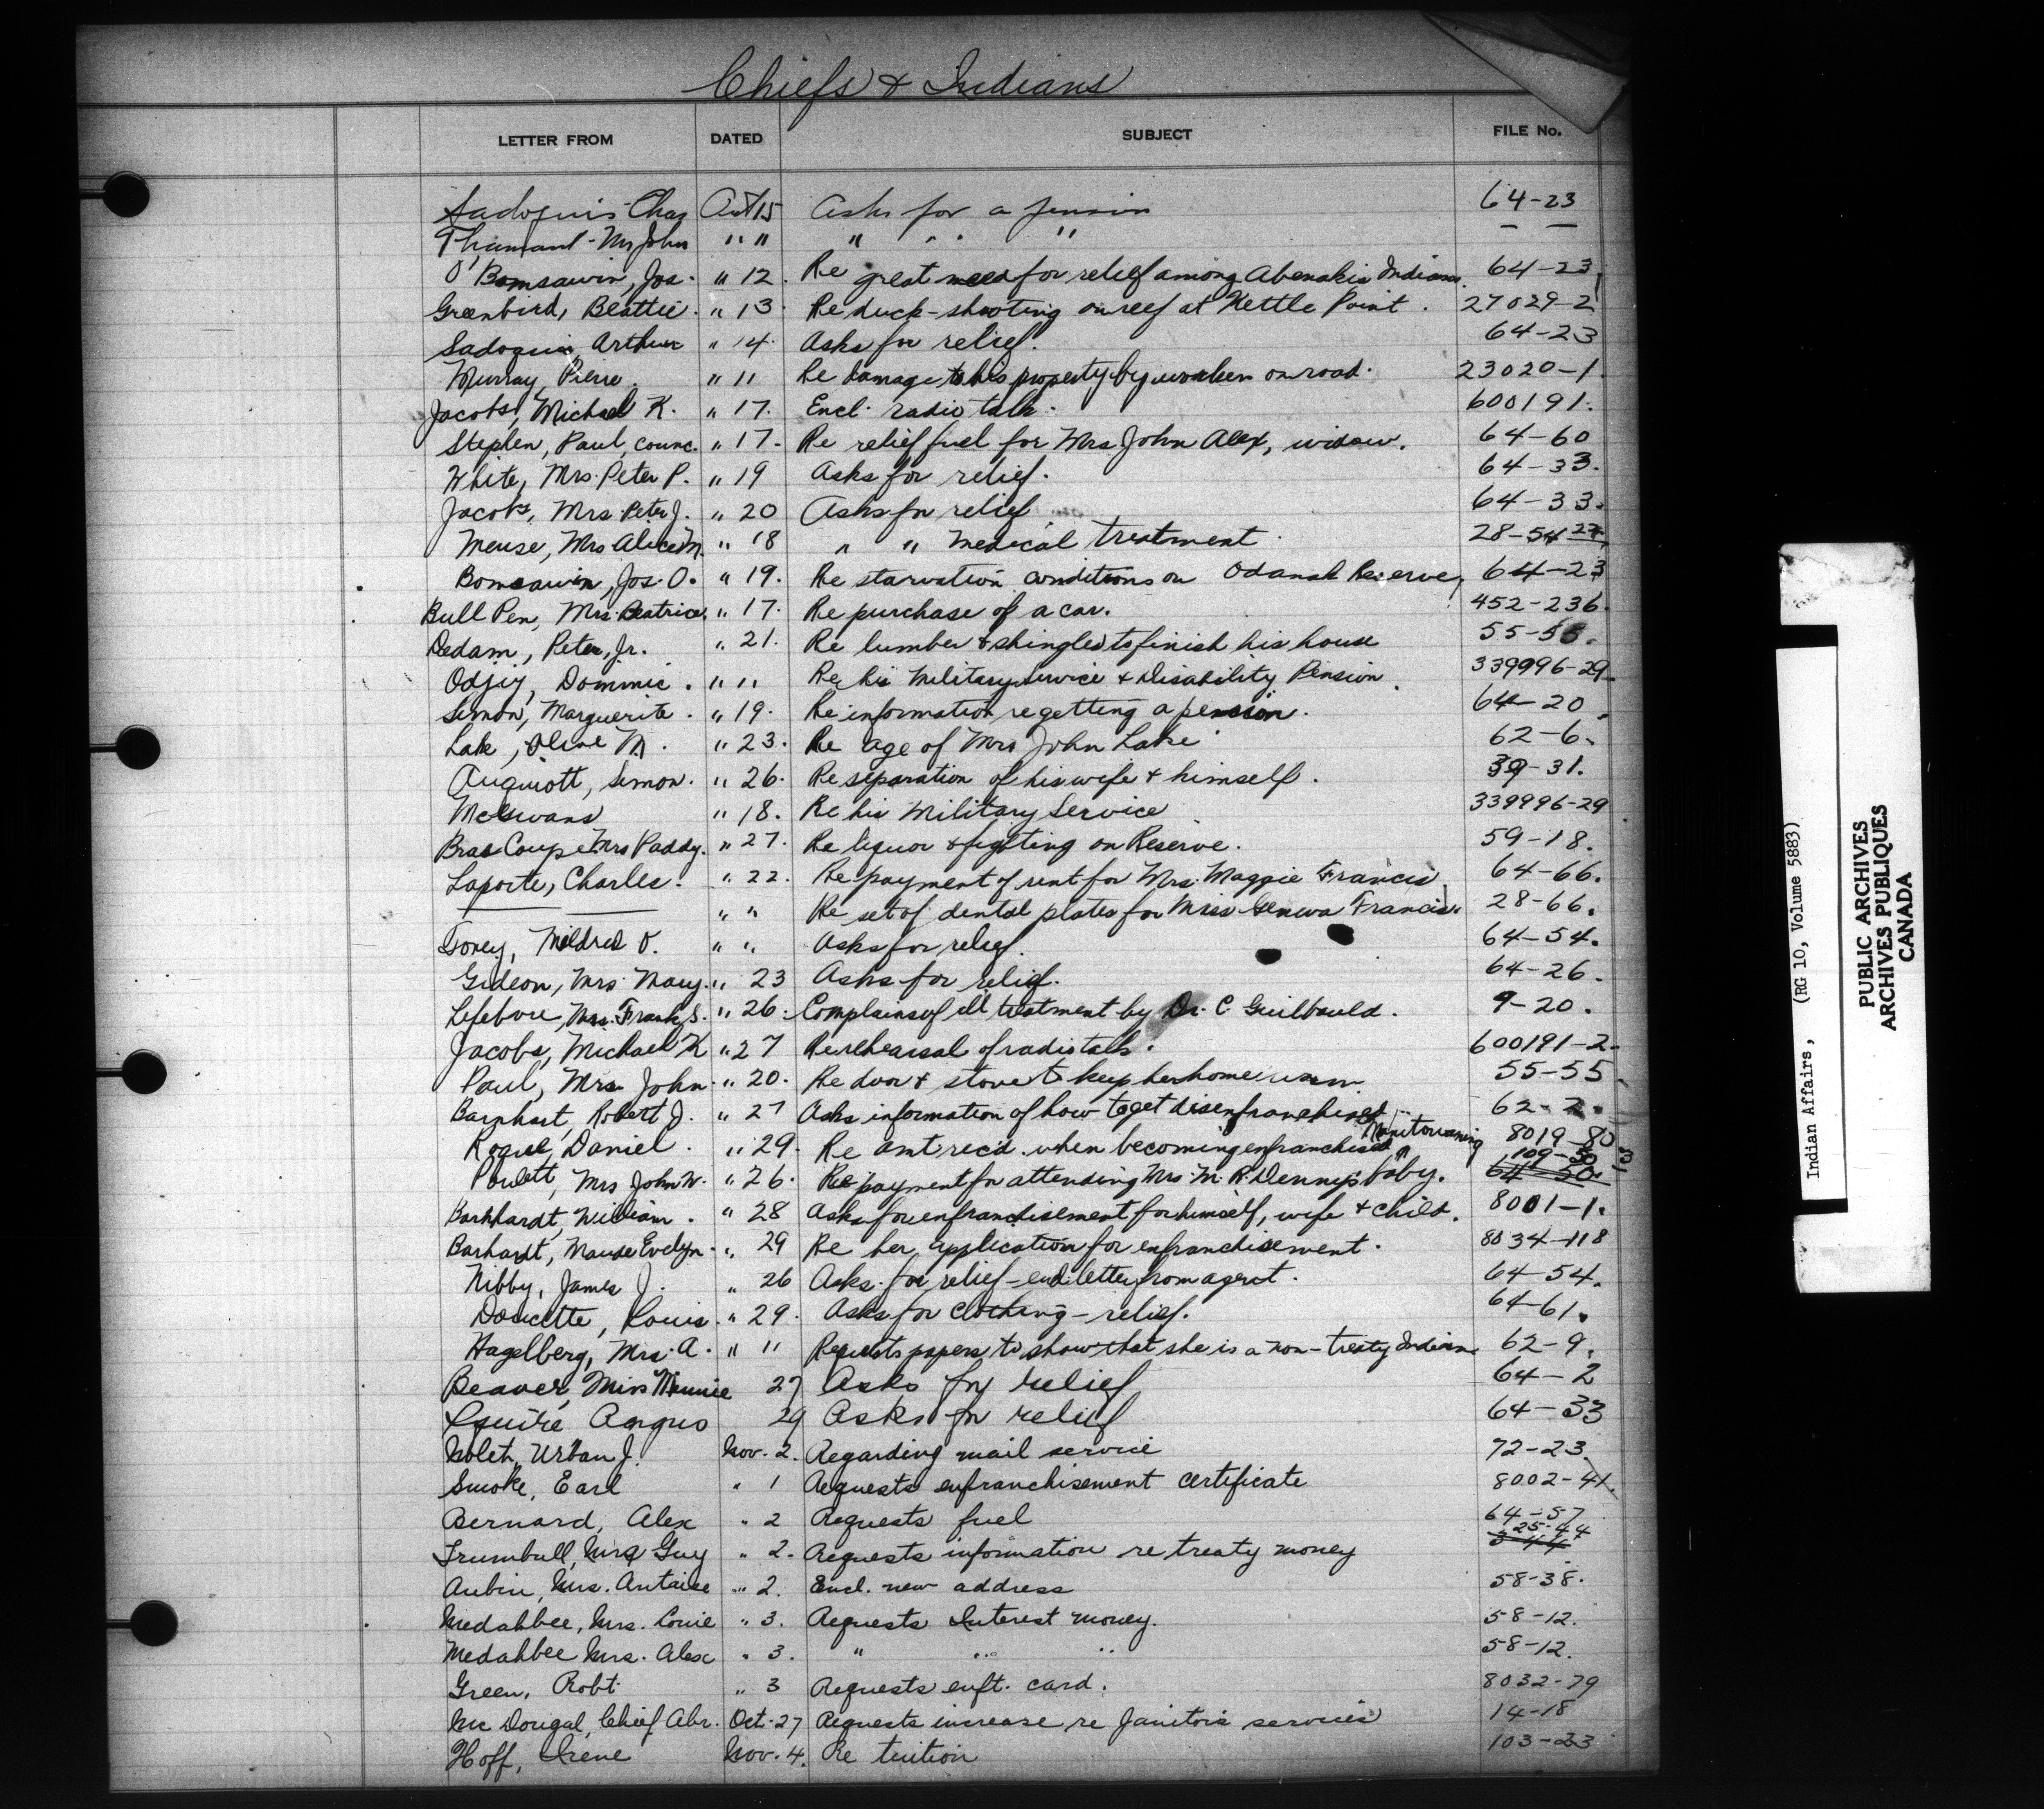 Chiefs & Indians
LETTER FROM DATED SUBJECT FILE No.
Sadoquis Chas Oct 15 Asks for a pension 64-23
Mrs John " " " " " " — —
O'Bomsawin, Jos. " 12. Re great need for relief among Abenakis Indians. 64-23
Greenbird, Beattie. " 13. Re duck-shooting on reef at Kettle Point. 27029-2
Sadoquis, Arthur " 14. Asks for relief. 64-23
Murray, Pierre. " 11 Re damage to his property by workers on road. 23020-1.
Jacobs, Michael K. " 17. Encl. radio talk. 600191.
Stephen, Paul, counc. " 17. Re relief fuel for Mrs John Alex, widow. 64-60
White, Mrs. Peter P. " 19 Asks for relief. 64-33.
Jacobs, Mrs. Peter J. " 20 Asks for relief 64-33.
Meuse, Mrs Alice M. " 18 " " medical treatment. 28-54-27
Bomsawin, Jos. O. " 19. Re starvation conditions on Odanak Reserve, 64-23
Bull Pen, Mrs. Beatrice. " 17. Re purchase of a car. 452-236.
Dedam, Peter, Jr. " 21. Re lumber & shingles to finish his house 55-55.
Odjig, Dominic. " " Re his Military Service & Disability Pension. 339996-29
Simon, Marguerite. " 19. Re information re getting a pension. 64-20.
Lake, Olive M. " 23. Re age of Mrs John Lake 62-6.
Simon. " 26. Re separation of his wife & himself. 39-31.
McEwans " 18. Re his Military Service 339996-29
Bras Coupe Mrs Paddy. " 27. Re liquor & fighting on Reserve. 59-18.
Laporte, Charles. " 22. Re payment of rent for Mrs. Maggie Francis. 64-66.
— — " " Re set of dental plates for Miss Geneva Francis. 28-66.
Toney, Mildred O. " " Asks for relief. 64-54.
Gideon, Mrs. Mary. " 23 Asks for relief. 64-26.
Lefebvre, Mrs. Frank S. " 26. Complains of ill treatment by Dr. C. Guilbauld. 9-20.
Jacobs, Michael K " 27 Re rehearsal of radio talk. 600191-2.
Paul, Mrs John. " 20. Re door & stove to keep her home warm 55-55.
Barnhart, Robert J. " 27 Asks information of how to get disenfranchised. 62-2.
Manitowaning
Daniel. " 29. Re amt rec'd. when becoming enfranchised 8019-80
109-50
Poulett, Mrs John W. " 26. Re payment for attending Mrs. M. R. Dennys baby. 64-50.
Barkhardt, William. " 28 Asks for enfranchisement for himself, wife & child. 8001-1.
Barhardt, Maude Evelyn. " 29 Re her application for enfranchisement. 8034-118
Nibby, James J. " 26 Asks for relief - encl. letter from agent. 64-54.
Doucette, Louis. " 29. Asks for clothing - relief. 64-61.
Hagelberg, Mrs. A. " 11 Requests papers to show that she is a non-treaty Indian 62-9.
Beaver, Miss Minnie 27 Asks for relief 64-2
Squire Angus 29 Asks for relief 64-33
Nolet, Urban J. Nov. 2. Regarding mail service 72-23.
Smoke, Earl " 1 Requests enfranchisement certificate 8002-41.
Bernard, Alex " 2 Requests fuel 64-57
25-44
Trumbull, Mrs Guy " 2. Requests information re treaty money
Aubin, Mrs. Antoine " 2. Encl. new address 58-38.
Medahbee, Mrs. Louie " 3. Requests Interest money. 58-12.
Medahbee Mrs. Alex " 3. " " " 58-12.
Green, Robt. " 3 Requests enft. card. 8032-79
Mc Dougal, Chief Abr. Oct. 27 Requests increase re Janitors services 14-18
Hoff, Irene Nov. 4. Re tuition 103-23
Indian Affairs, (RG 10, Volume 5883)
PUBLIC ARCHIVES
ARCHIVES PUBLIQUES
CANADA